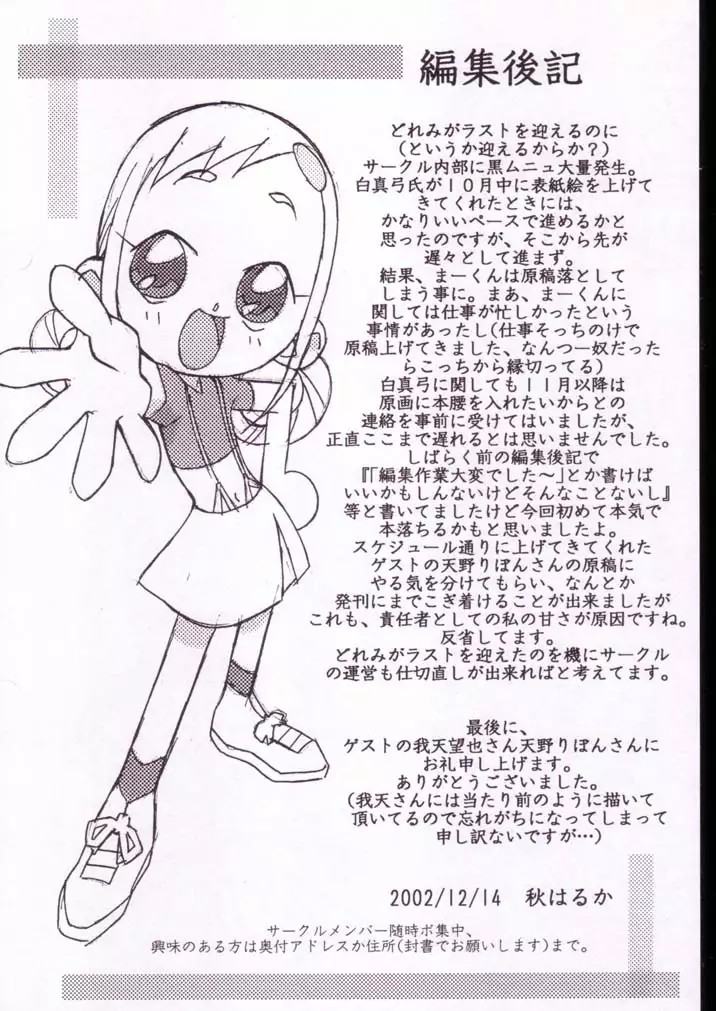 編集後記
どれみがラストを迎えるのに
(というか迎えるからか?)
サークル内部に黒ムニュ大量発生。
白真弓氏が10月中に表紙絵を上げて
きてくれたときには、
かなりいいペースで進めるかと
思ったのですが、そこから先が
遅々として進まず。
結果、まーくんは原稿落として
しまう事に。まあ、まーくんに
関しては仕事が忙しかったという
事情があったし(仕事そっちのけで
原稿上げてきました、なんつー奴だった
らこっちから縁切ってる)
白真弓に関しても11月以降は
原画に本腰を入れたいからとの
連絡を事前に受けてはいましたが、
正直ここまで遅れるとは思いませんでした。
しばらく前の編集後記で
『「編集作業大変でした~」とか書けば
いいかもしんないけどそんなことないし』
等と書いてましたけど今回初めて本気で
本落ちるかもと思いましたよ。
スケジュール通りに上げてきてくれた
ゲストの天野りぼんさんの原稿に
やる気を分けてもらい、なんとか
発刊にまでこぎ着けることが出来ましたが
これも、責任者としての私の甘さが原因ですね。
反省してます。
どれみがラストを迎えたのを機にサークル
の運営も仕切直しが出来ればと考えてます。
最後に、
ゲストの我天望也さん天野りぼんさんに
お礼申し上げます。
ありがとうございました。
(我天さんには当たり前のように描いて
頂いてるので忘れがちになってしまって
申し訳ないですが…)
2002/12/14 秋はるか
サークルメンバー随時ボ集中、
興味のある方は奥付アドレスか住所(封書でお願いします)まで。